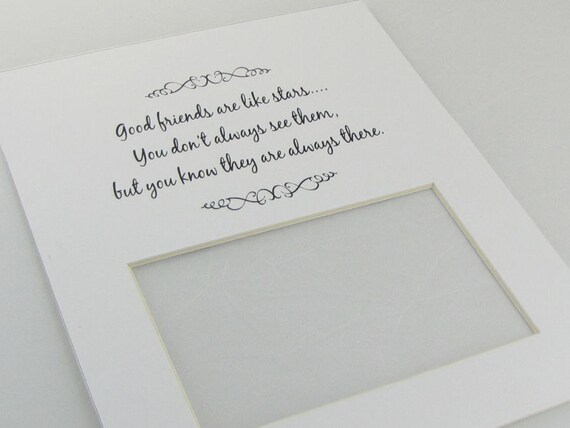 Good friends are like stars....
You don't always see them,
but you know they are always there.